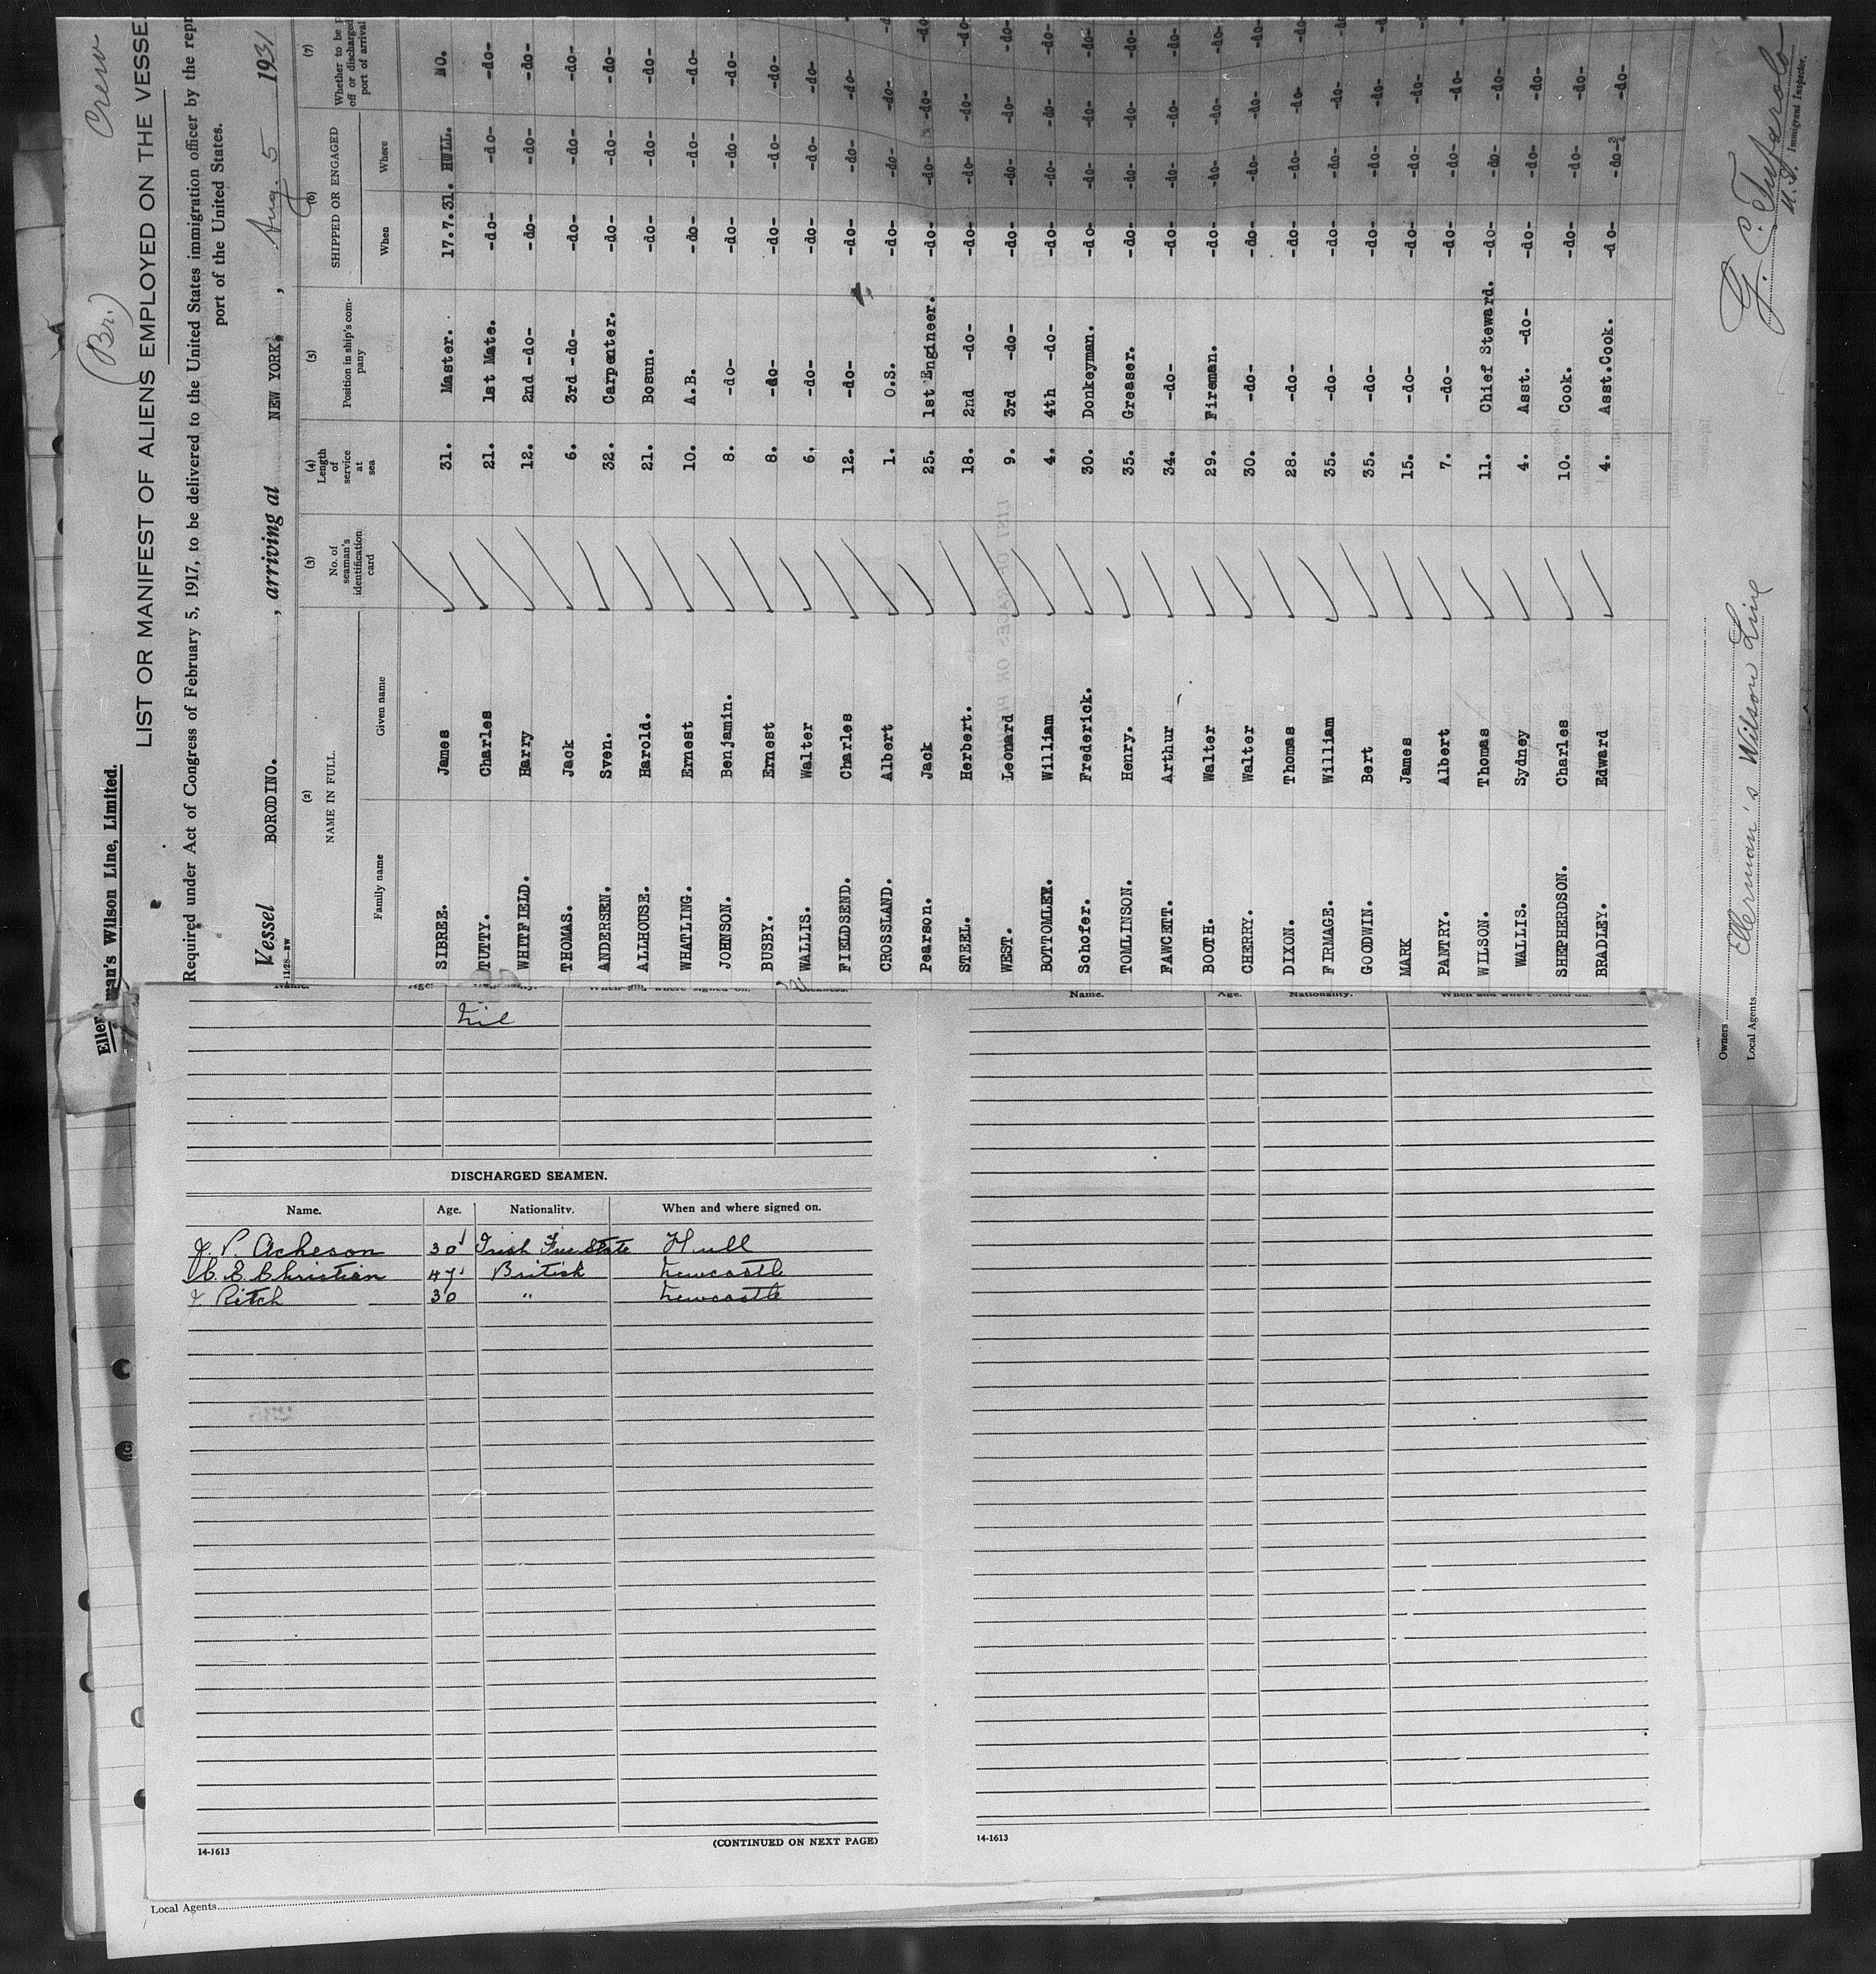 (Br.) Crew
Ellerman's Wilson Line, Limited.
LIST OR MANIFEST OF ALIENS EMPLOYED ON THE VESSE
Required under Act of Congress of February 5, 1917, to be delivered to the United States immigration officer by the repr
port of the United States.
Vessel BORODINO. , arriving at NEW YORK. , Aug. 5 1931
-11/28-
(2) (3) (4) (5) (6) (7)
NAME IN FULL No. of seaman's identification card Length of service at sea Position in ship's company SHIPPED OR ENGAGED Whether to be off or discharged port of arrival
Family name Given name When Where
SIBREE. James 31. Master. 17.7.31. HULL. NO.
TUTTY. Charles 21. 1st Mate. -do- -do- -do-
WHITFIELD. Harry 12. 2nd -do- -do- -do- -do-
THOMAS. Jack 6. 3rd -do- -do- -do- -do-
ANDERSEN. Sven. 32. Carpenter. -do- -do- -do-
ALLHOUSE. Harold. 21. Bosun. -do- -do- -do-
WHATLING. Ernest 10. A.B. -do- -do- -do-
JOHNSON. Benjamin. 8. -do- -do- -do- -do-
BUSBY. Ernest 8. -do- -do- -do- -do-
WALLIS. Walter 6. -do- -do- -do- -do-
FIELDSEND. Charles 12. -do- -do- -do- -do-
CROSSLAND. Albert 1. O.S. -do- -do- -do- -d
Pearson. Jack 25. 1st Engineer. -do- -do- -do- -do-
STEEL. Herbert. 18. 2nd -do- -do- -do- -do- -do-
WEST. Leonard 9. 3rd -do- -do- -do- -do- -do-
BOTTOMLEE. William 4. 4th -do- -do- -do- -do- -do-
Schofer. Frederick. 30. Donkeyman. -do- -do- -do- -do-
TOMLINSON. Henry. 35. Greaser. -do- -do- -do- -do-
FAWCETT. Arthur 34. -do- -do- -do- -do- -do-
BOOTH. Walter 29. Fireman. -do- -do- -do- -do-
CHERRY. Walter 30. -do- -do- -do- -do- -do-
DIXON. Thomas 28. -do- -do- -do- -do- -do-
FIRMAGE. William 35. -do- -do- -do- -do-
GOODWIN. Bert 35. -do- -do- -do- -do-
MARK James 15. -do- -do- -do- -do-
PANTRY. Albert 7. -do- -do- -do- -do-
WILSON. Thomas 11. Chief Steward. -do- -do- -do-
WALLIS. Sydney 4. Asst. -do- -do- -do- -do-
SHEPHERDSON. Charles 10. Cook. -do- -do- -do-
BRADLEY. Edward 4. Asst.Cook. -do- -do- -do-
Owners
Local Agents Ellerman's Wilson Line
U.S. Immigrant Inspector.
Name. Age. Nationality. When and where signed on.
Nil
Name. Age. Nationality. When and where signed on.
DISCHARGED SEAMEN.
Name. Age. Nationality. When and where signed on.
J. P. Acheson 30 Irish Free State Hull
C. E. Christian 47 British Newcastle
J. Ritch 30 " Newcastle
14-1613 (CONTINUED ON NEXT PAGE)
14-1613
Local Agents